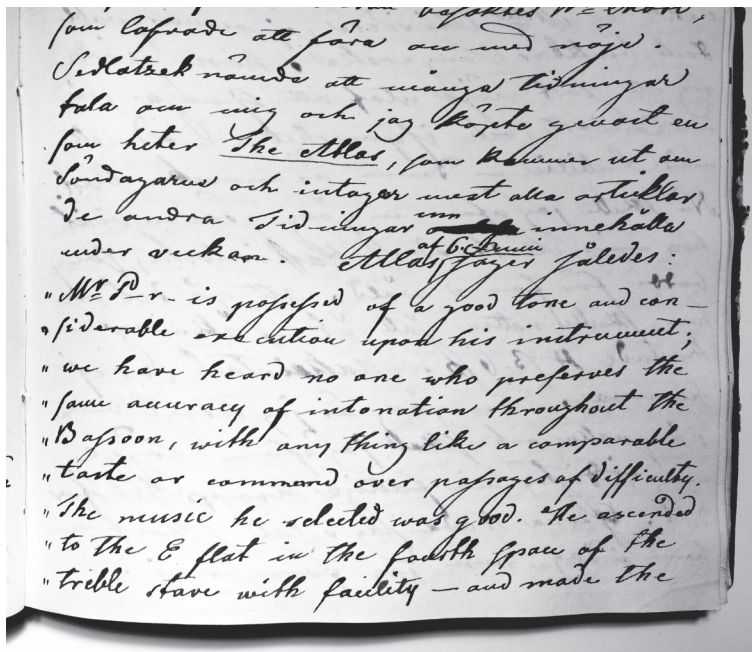 som lofvade att föra om med nöje.
Sedlatzek nämde att många tidningar
tala om mig och jag köpte genast en
som heter The Atlas, som kommer ut om
Söndagarne och intager mest alla articklar
de andra Tidningar innehålla
under veckan. Atlas, af 6 Junii säger således:
"Mr P-r- is possessed of a good tone and con-
"siderable execution upon his instrument;
"we have heard no one who preserves the
"same accuracy of intonation throughout the
"Bassoon, with any thing like a comparable
"taste or command over passages of difficulty.
"The music he selected was good. He ascended
"to the E flat in the fourth space of the
"treble stave with facility – and made the